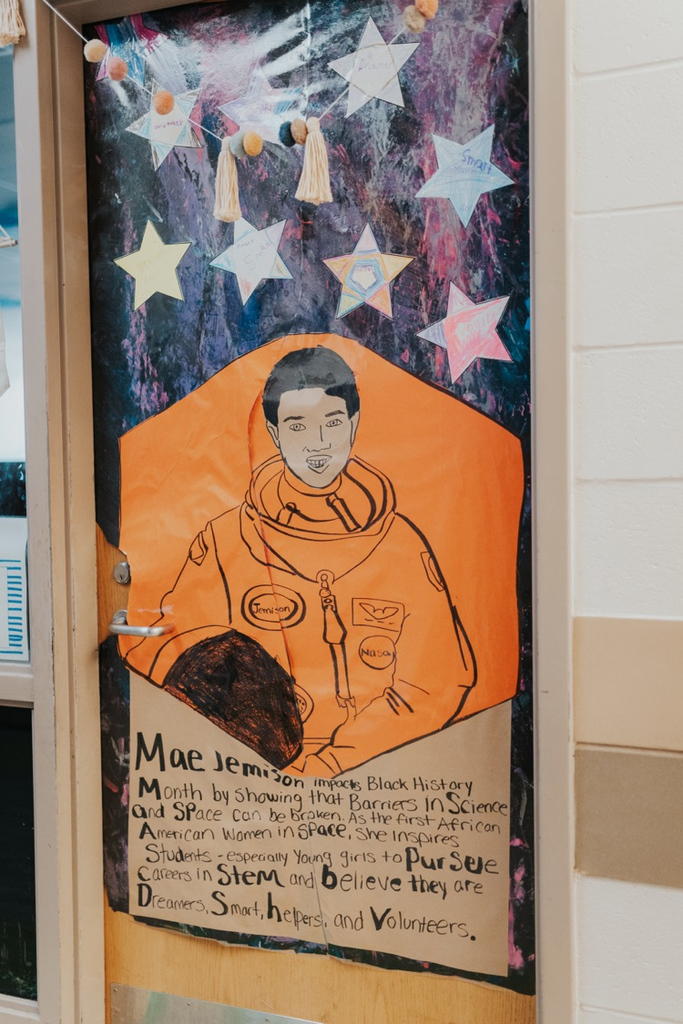 Smart
Jemison
Nasa
Mae Jemison impacts Black History
Month by showing that Barriers in Science
and SPace can be broken. As the first African
American Women in SPace, She inspires
Students - especially Young girls to Pursue
Careers in STEM and believe they are
Dreamers, Smart, helpers, and Volunteers.